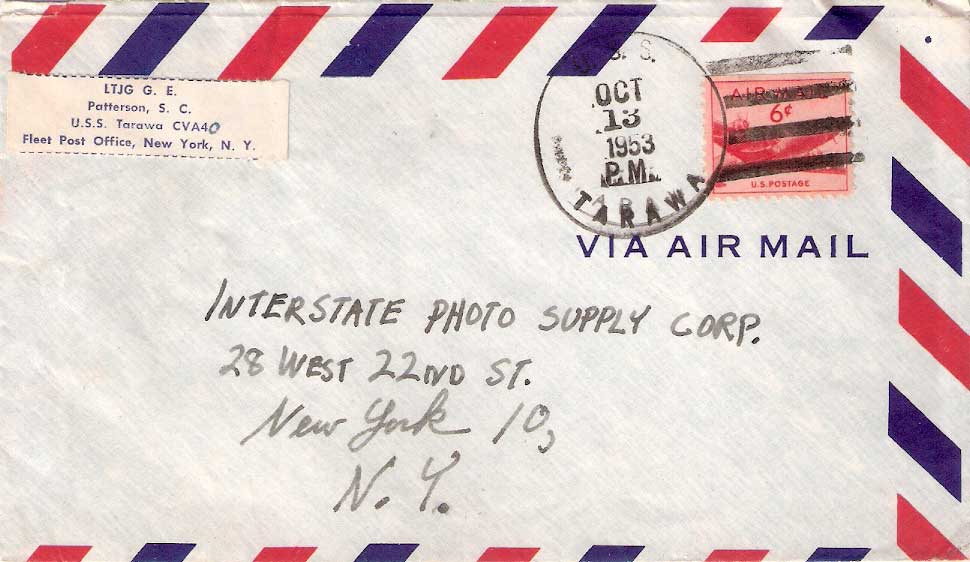 LTJG G. E.
Patterson, S. C.
U.S.S. Tarawa CVA40
Fleet Post Office, New York, N. Y.
U. S. S.
OCT
13
1953
P.M.
TARAWA
AIR MAIL
6¢
U.S. POSTAGE
VIA AIR MAIL
INTERSTATE PHOTO SUPPLY CORP.
28 WEST 22ND ST.
New York 10,
N.Y.